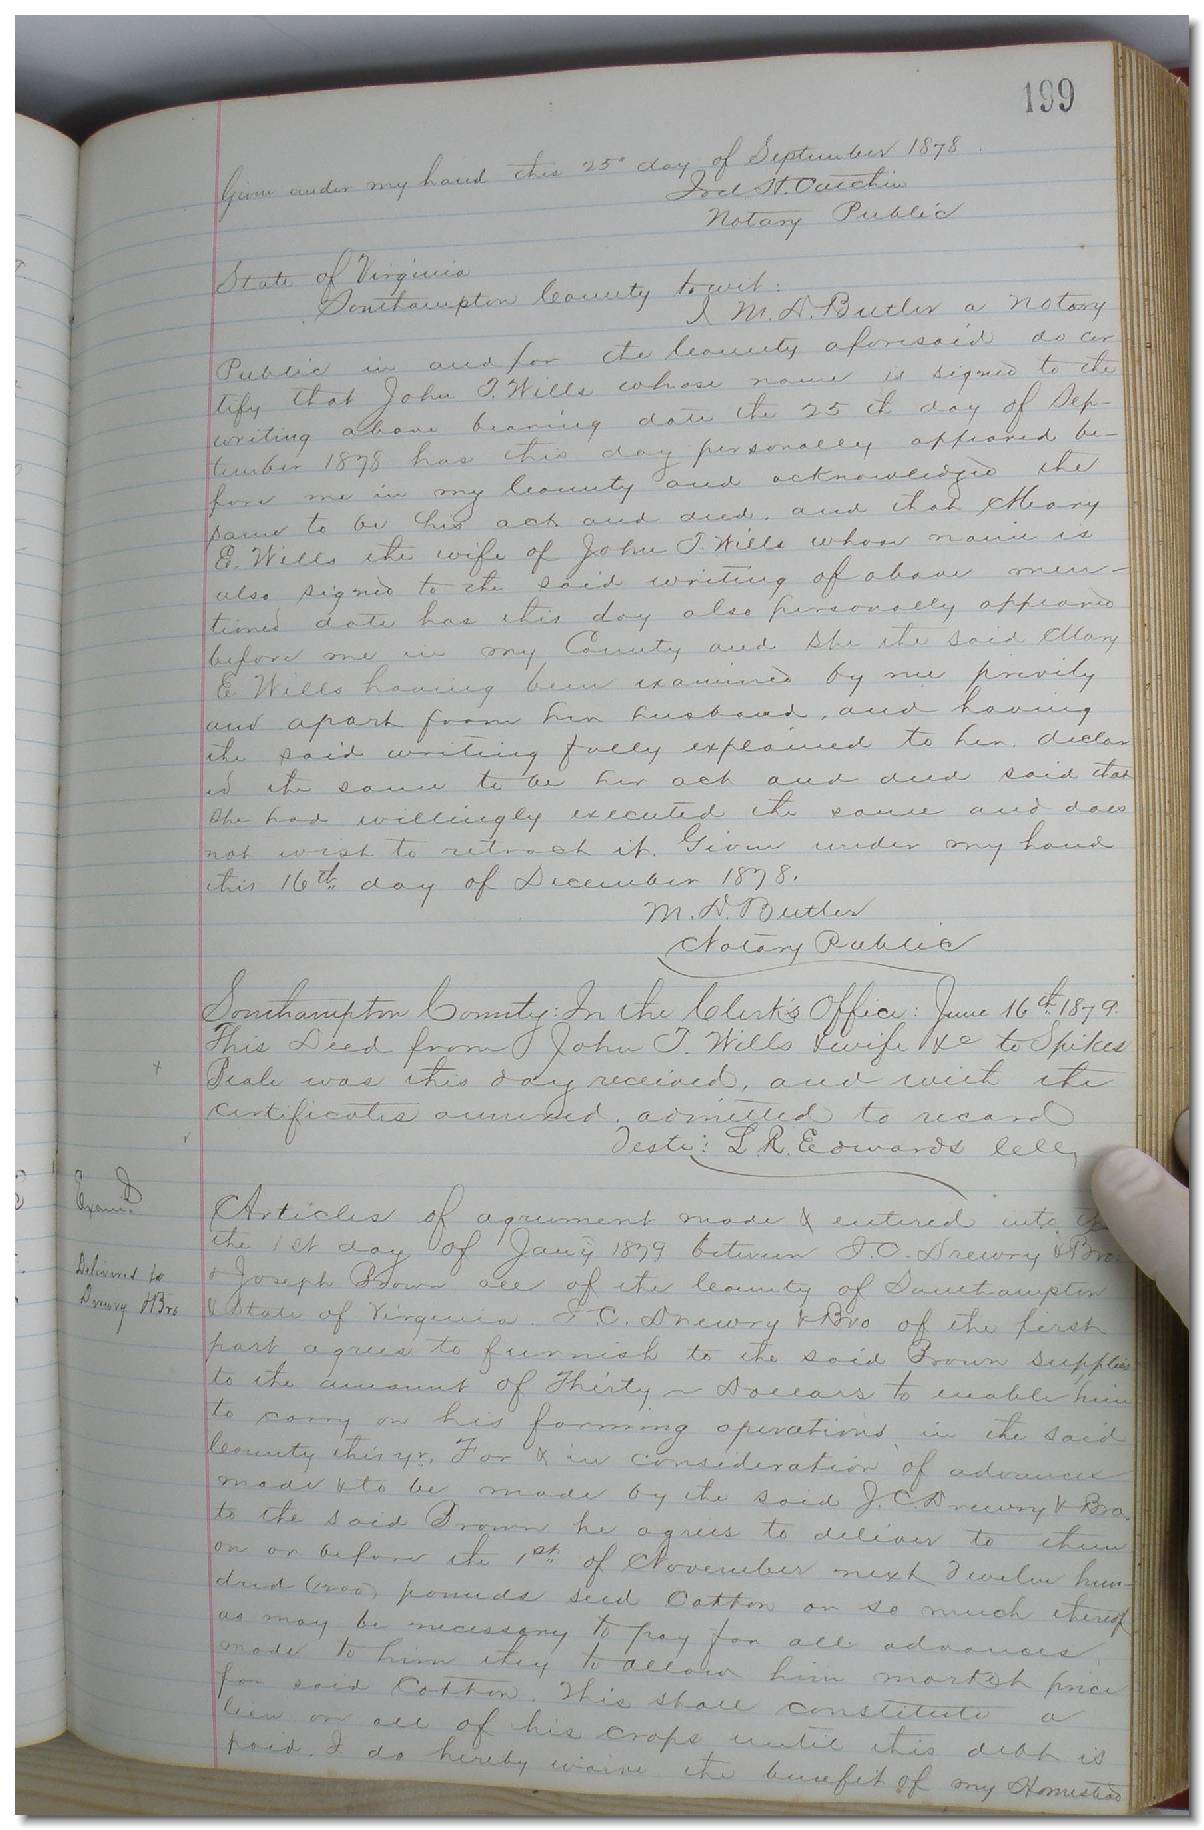 199
Given under my hand this 25th day of September 1878.
Notary Public
State of Virginia
Southampton County to wit:
I M. D. Butler a Notary
Public in and for the County aforesaid do cer
tify that John T. Wills whose name is signed to the
writing above bearing date the 25th day of Sep-
tember 1878 has this day personally appeared be-
fore me in my County and acknowledged the
same to be his act and deed. and that Mary
E. Wills the wife of John T. Wills whose name is
also signed to the said writing of above men-
tioned date has this day also personally appeared
before me in my County and she the said Mary
E Wills having been examined by me privily
and apart from her husband, and having
the said writing fully explained to her. declar
ed the same to be her act and deed said that
she had willingly executed the same and does
not wish to retract it. Given under my hand
this 16th day of December 1878.
M. D. Butler
Notary Public
Southampton County: In the Clerk's Office: June 16th 1879.
This Deed from John T. Wills & wife &c to Spikes
Beale was this day received, and with the
certificates annexed, admitted to record
Teste: L. R. Edwards Clk
Examd
Delivered to
Drewry & Bro
Articles of agreement made & entered into
the 1st day of Jany 1879 between J. C. Drewry & Bro.
& Joseph Brown all of the County of Southampton
& State of Virginia. J. C. Drewry & Bro of the first
part agrees to furnish to the said Brown supplies
to the amount of Thirty ~ Dollars to enable him
to carry on his farming operations in the said
County this yr. For & in consideration of advances
made & to be made by the said J. C. Drewry & Bro.
to the said Brown he agrees to deliver to them
on or before the 1st of November next Twelve hun-
dred (1200) pounds seed Cotton or so much thereof
as may be necessary to pay for all advances
made to him they to allow him market price
for said Cotton. This shall constitute a
lien on all of his crops until this debt is
paid. I do hereby waive the benefit of my Homestead